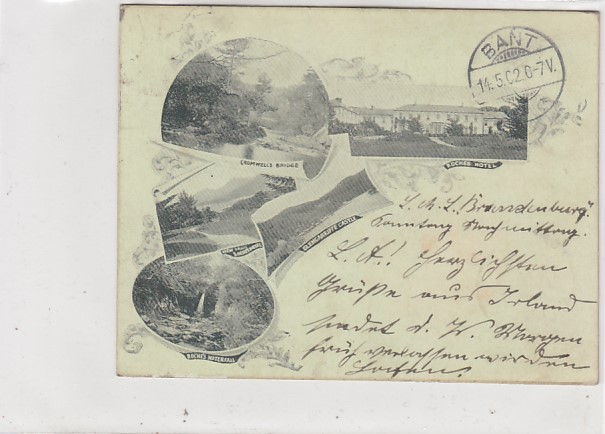 BANT
14.5.02.6-7V.
CROMWELL'S BRIDGE
ROCHES HOTEL
GLENGARRIFF CASTLE
ROCHES WATERFALL
S.M.S. "Brandenburg".
Sonntag Nachmittag.
L. A.! Herzlichsten
Grüße aus Irland
sendet d. W. Morgen
früh verlassen wir den
Hafen.